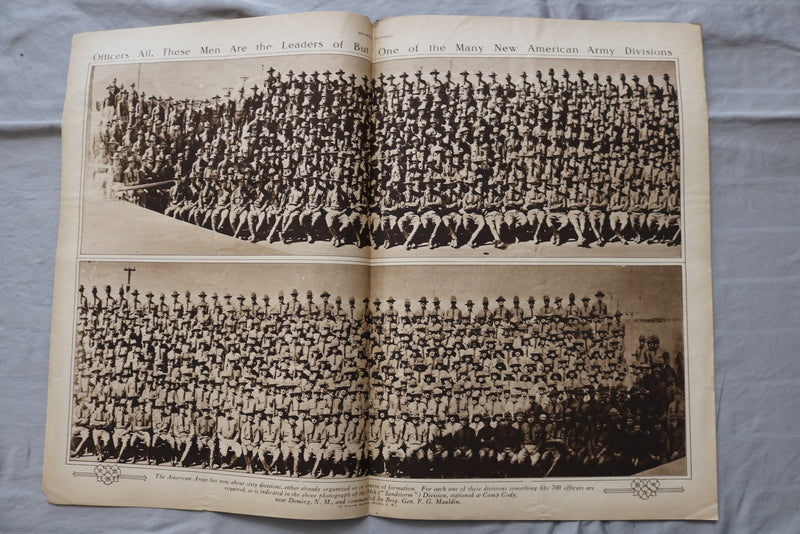 Officers All, These Men Are the Leaders of But One of the Many New American Army Divisions
The American Army has now about sixty divisions, either already organized or in course of formation. For each one of these divisions something like 700 officers are
required, as is indicated in the above photograph of the ("Sandstorm") Division, stationed at Camp Cody,
near Deming, N. M., and commanded by Brig. Gen. F. G. Mauldin.